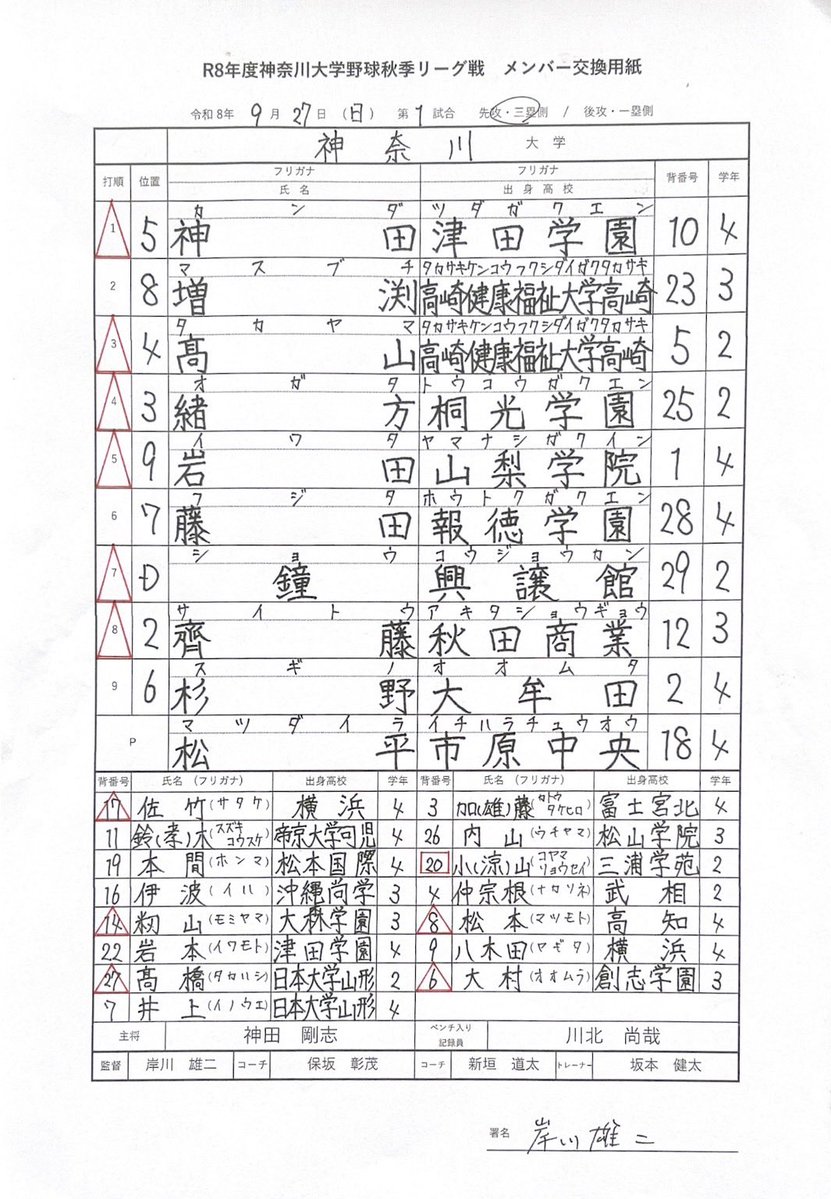 R8年度神奈川大学野球秋季リーグ戦 メンバー交換用紙
令和8年 9月27日 (日) 第1試合 先攻・三塁側 / 後攻・一塁側
神奈川 大学
打順 位置 フリガナ 氏名 フリガナ 出身高校 背番号 学年
カンダ ツダガクエン
1 5 神田 津田学園 10 4
マスブチ タカサキケンコウフクシダイガクタカサキ
2 8 増渕 高崎健康福祉大学高崎 23 3
タカヤマ タカサキケンコウフクシダイガクタカサキ
3 4 髙山 高崎健康福祉大学高崎 5 2
オガタ トウコウガクエン
4 3 緒方 桐光学園 25 2
イワタ ヤマナシガクイン
5 9 岩田 山梨学院 1 4
フジタ ホウトクガクエン
6 7 藤田 報徳学園 28 4
ショウ コウジョウカン
7 D 鐘 興譲館 29 2
サイトウ アキタショウギョウ
8 2 齊藤 秋田商業 12 3
スギノ オオムタ
9 6 杉野 大牟田 2 4
マツダイラ イチハラチュウオウ
P 松平 市原中央 18 4
背番号 氏名(フリガナ) 出身高校 学年 背番号 氏名(フリガナ) 出身高校 学年
17 佐竹(サタケ) 横浜 4 3 加(雄)藤(カトウタケヒロ) 富士宮北 4
11 鈴(孝)木(スズキコウスケ) 帝京大学可児 4 26 内山(ウチヤマ) 松山学院 3
19 本間(ホンマ) 松本国際 4 20 小(涼)山(コヤマリョウセイ) 三浦学苑 2
16 伊波(イハ) 沖縄尚学 3 4 仲宗根(ナカソネ) 武相 2
14 籾山(モミヤマ) 大森学園 3 8 松本(マツモト) 高知 4
22 岩本(イワモト) 津田学園 4 9 八木田(ヤギタ) 横浜 4
27 髙橋(タカハシ) 日本大学山形 2 6 大村(オオムラ) 創志学園 3
7 井上(イノウエ) 日本大学山形 4
主将 神田 剛志 ベンチ入り記録員 川北 尚哉
監督 岸川 雄二 コーチ 保坂 彰茂 コーチ 新垣 道太 トレーナー 坂本 健太
署名 岸川雄二